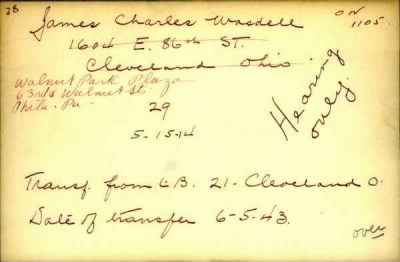 28
James Charles Wasdell
O N
1105.
1604 E. 86th ST.
Cleveland Ohio.
Walnut Park Plaza
63rd & Walnut St.
Phila. Pa.
Hearing only.
29
5-15-14
Transf. from L.B. 21 - Cleveland O.
Date of transfer 6-5-43.
over